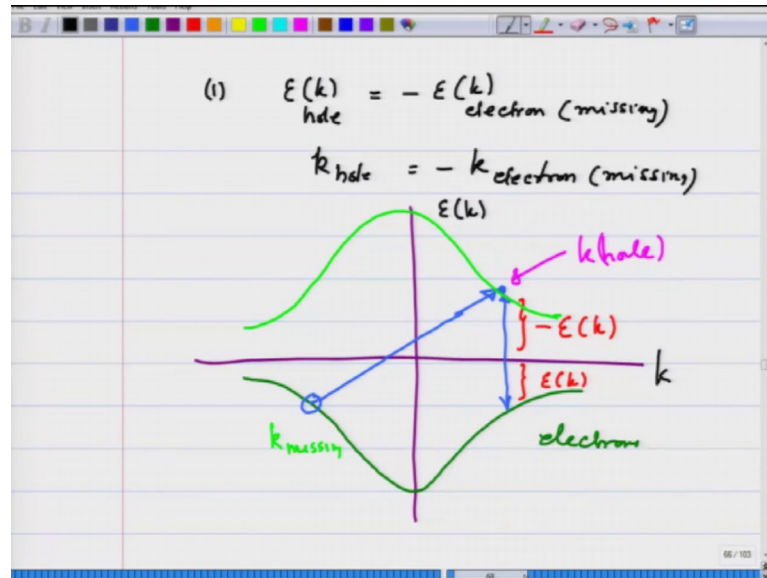 (1) ε(k) hole = - ε(k) electron (missing)
k hole = - k electron (missing)
ε(k)
k(hole)
-ε(k)
k
ε(k)
k missin
electrons
66 / 103